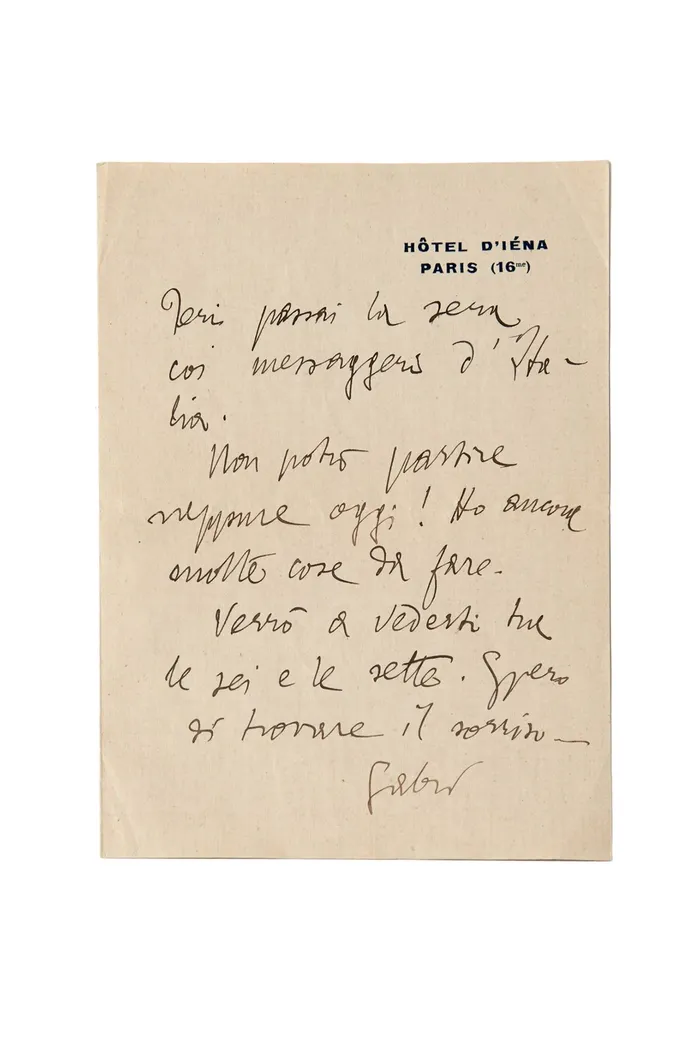 HÔTEL D'IÉNA
PARIS (16me)
Ieri passai la sera
coi messaggeri d'Ita-
lia.
Non potrò partire
neppure oggi! Ho ancora
molte cose da fare.
Verrò a vederti tra
le sei e le sette. Spero
di trovare il sorriso —
Gabri